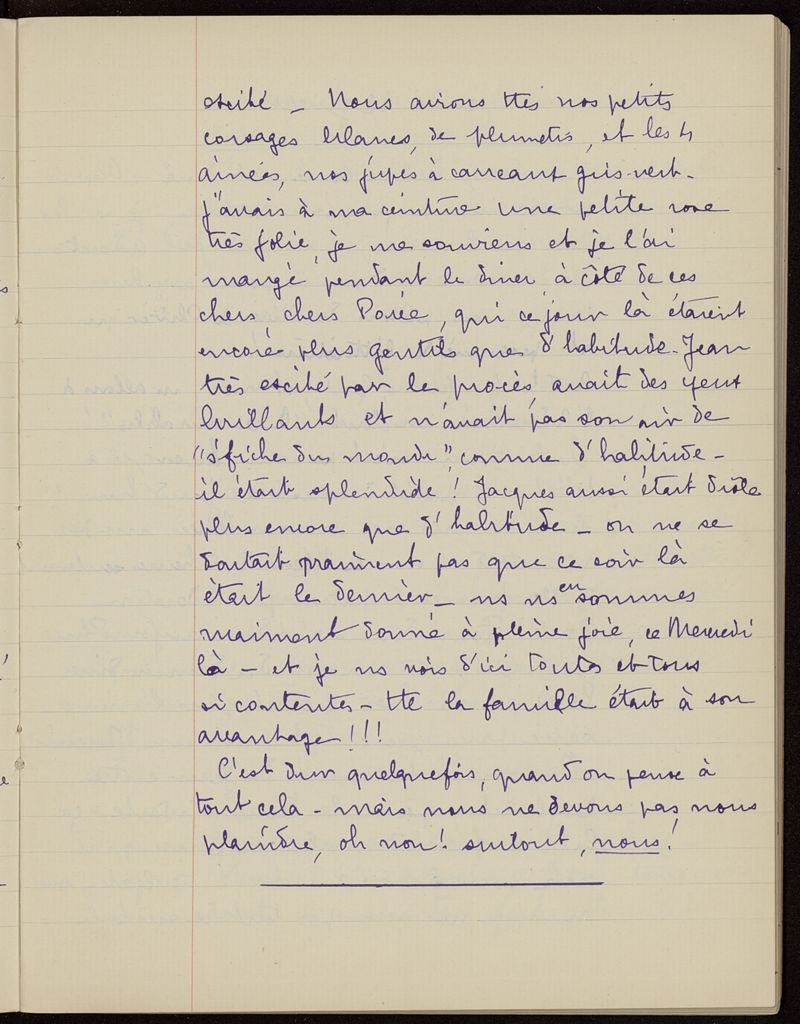 excité _ Nous avions ttes nos petits
corsages blancs, de plumetis, et les 4
aînées, nos jupes à carreaux gris-vert.
j'avais à ma ceinture une petite rose
très jolie, je me souviens et je l'ai
mangé pendant le diner, à côté de ces
chers chers Porée, qui ce jour là étaient
encore plus gentils que d'habitude. Jean
très excité par le procès, avait des yeux
brillants et n'avait pas son air de
"s'fiche du monde", comme d'habitude -
il était splendide ! Jacques aussi était drôle
plus encore que d'habitude _ on ne se
doutait vraiment pas que ce soir là
était le dernier _ ns ns en sommes
vraiment donné à pleine joie, ce Mercredi
là - et je ns vois d'ici toutes et tous
si contentes - tte la famille était à son
avantage !!!
C'est dur quelquefois, quand on pense à
tout cela - mais nous ne devons pas nous
plaindre, oh non ! surtout, nous !